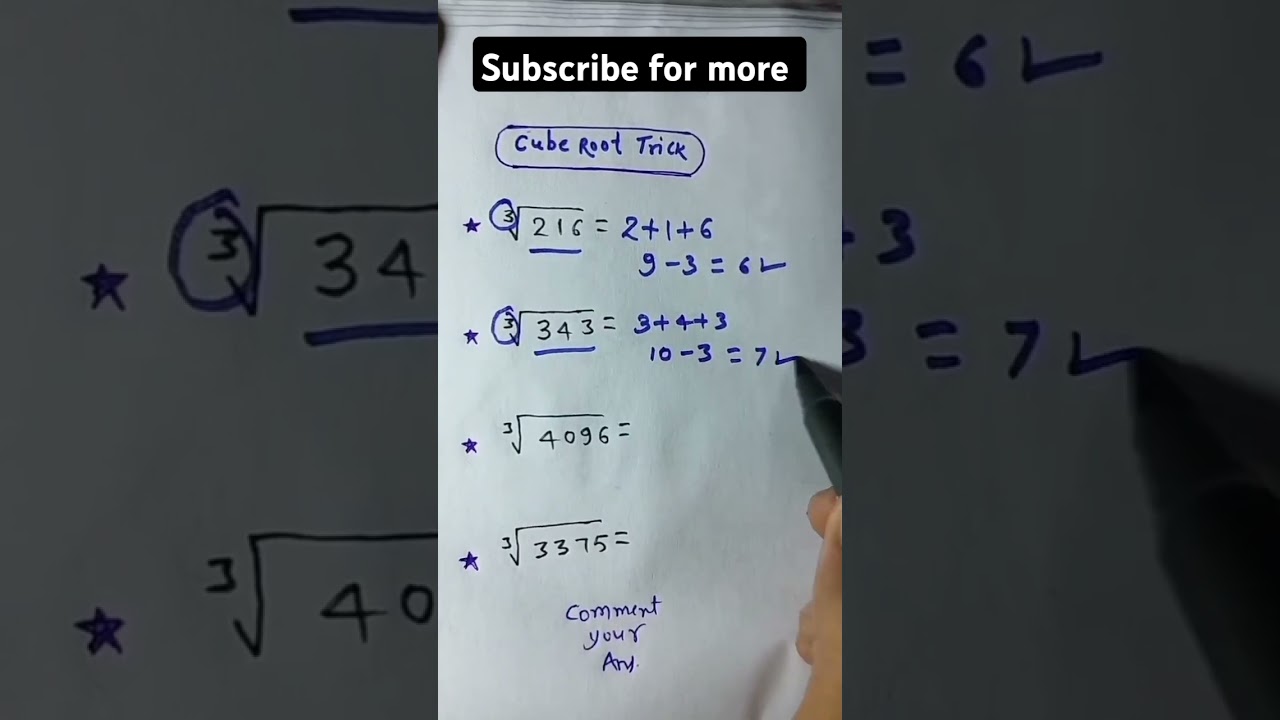 Subscribe for more
Cube Root Trick
★ ³√216 = 2+1+6
9-3 = 6✓
★ ³√343 = 3+4+3
10-3 = 7✓
★ ³√4096 =
★ ³√3375 =
Comment
your
Ans.
= 6✓
★ ³√34
+3
3 = 7✓
★ ³√40